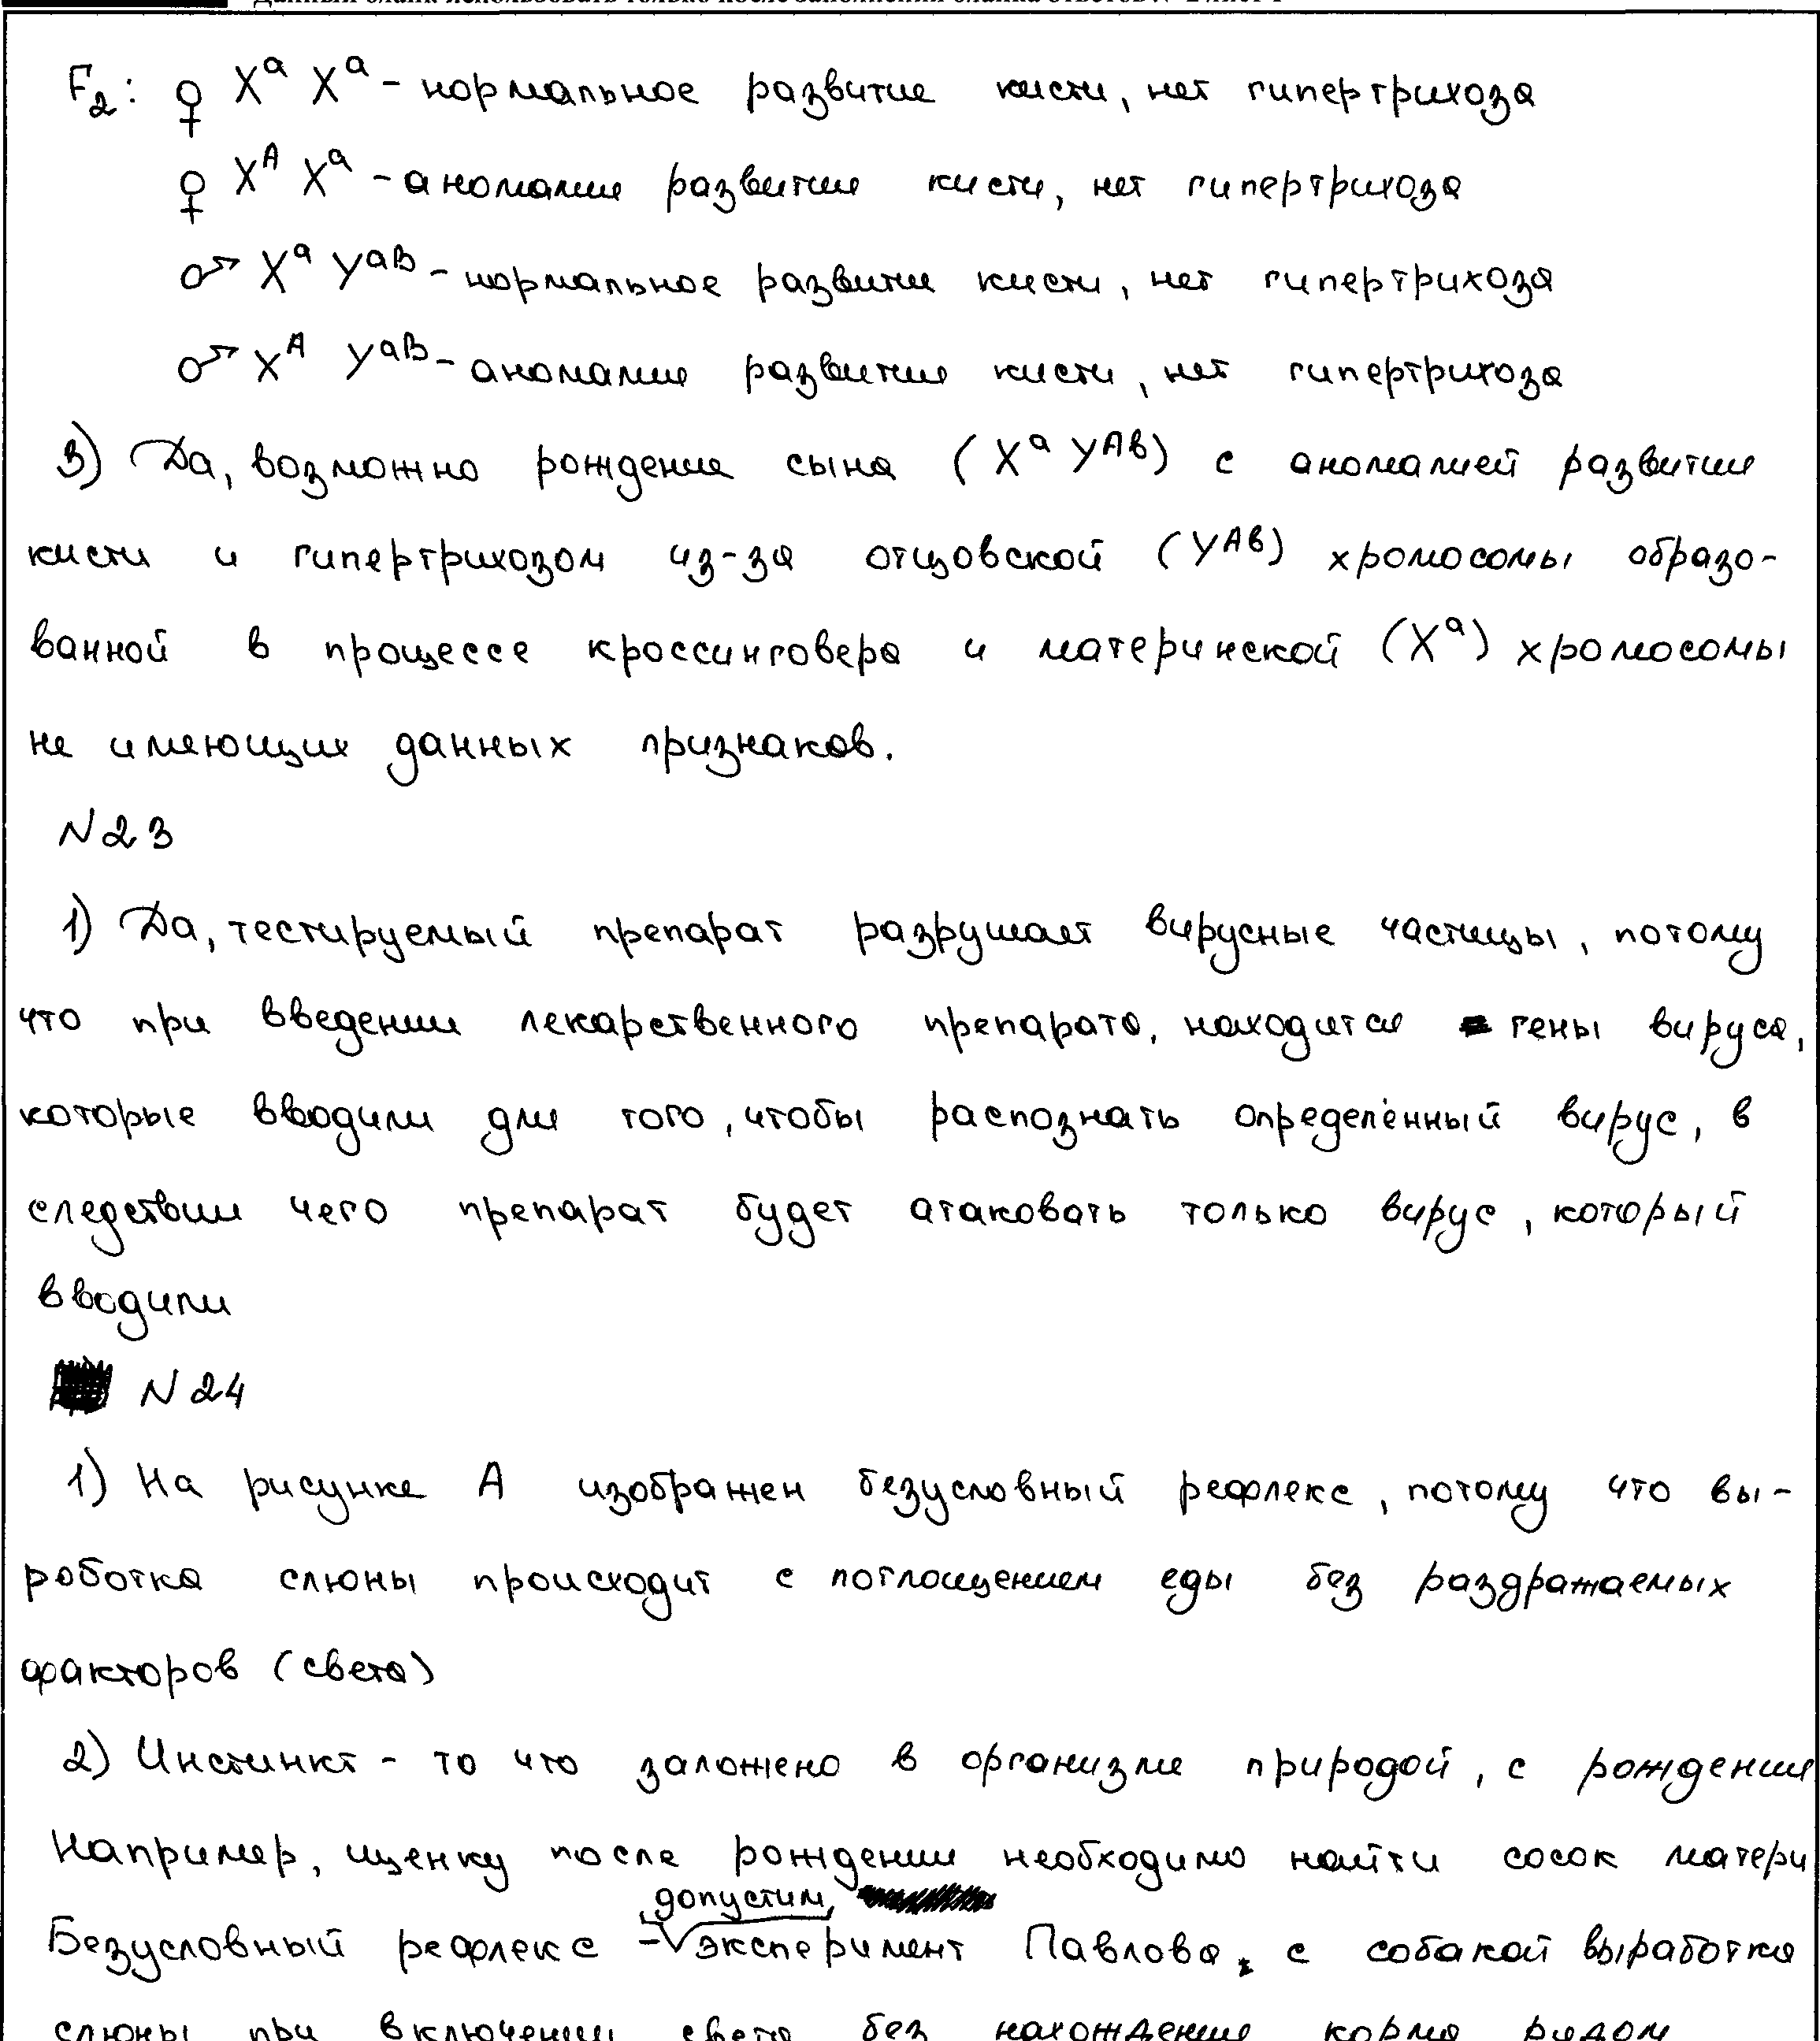 Данный бланк использовать только после заполнения бланка ответов № 2 лист 1
F₂: ♀ Xᵃ Xᵃ - нормальное развитие кисти, нет гипертрихоза
♀ Xᴬ Xᵃ - аномалия развития кисти, нет гипертрихоза
♂ Xᵃ Yᵃᴮ - нормальное развитие кисти, нет гипертрихоза
♂ Xᴬ Yᵃᴮ - аномалия развития кисти, нет гипертрихоза
3) Да, возможно рождение сына (Xᵃ Yᴬᵇ) с аномалией развития
кисти и гипертрихозом из-за отцовской (Yᴬᵇ) хромосомы образо-
ванной в процессе кроссинговера и материнской (Xᵃ) хромосомы
не имеющих данных признаков.
N23
1) Да, тестируемый препарат разрушает вирусные частицы, потому
что при введении лекарственного препарата, находится гены вируса,
которые вводили для того, чтобы распознать определённый вирус, в
следствии чего препарат будет атаковать только вирус, который
вводили
N24
1) На рисунке А изображен безусловный рефлекс, потому что вы-
роботка слюны происходит с поглощением еды без раздражаемых
факторов (света)
2) Инстинкт - то что заложено в организме природой, с рождения
Например, щенку после рождения необходимо найти сосок матери
Безусловный рефлекс - допустим, эксперимент Павлова, с собакой выработка
слюны при включении света без нахождения корма рядом